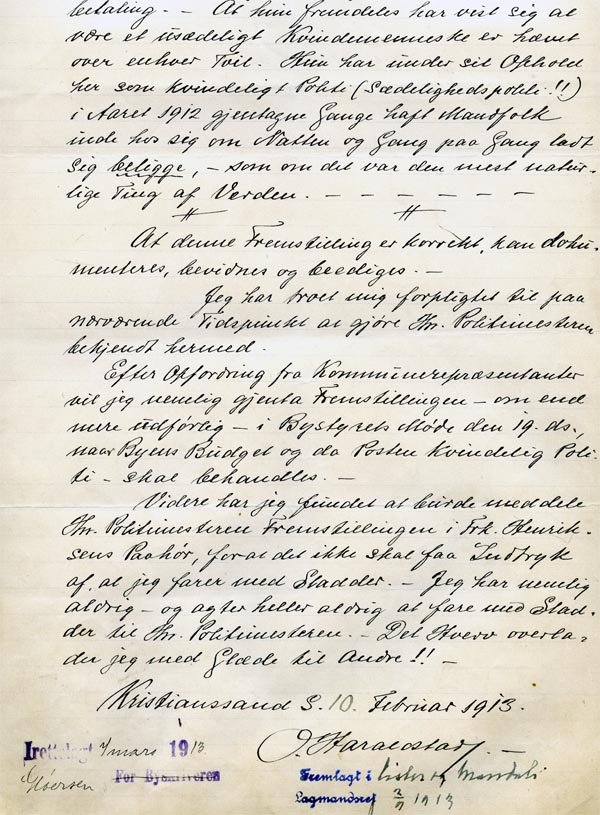 betaling. — At hun fremdeles har vist sig at
være et usædeligt Kvindemenneske er hævet
over enhver Tvil. Hun har under sit Ophold
her som kvindeligt Politi (Sædelighedspoliti!!)
i Aaret 1912 gjentagne Gange haft Mandfolk
inde hos sig om Natten og Gang paa Gang ladt
sig beligge, — som om det var den mest natur-
lige Ting af Verden. — — — — — —
At denne Fremstilling er korrekt, kan doku-
menteres, bevidnes og beediges. —
Jeg har troet mig forpligtet til paa
nærværende Tidspunkt at gjøre Hr. Politimesteren
bekjendt hermed.
Efter Opfordring fra Kommunerepræsentanter
vil jeg nemlig gjenta Fremstillingen — om end
mere udførlig — i Bystyrets Møde den 19. ds.,
naar Byens Budget og da Posten Kvindelig Poli-
ti — skal behandles. —
Videre har jeg fundet at burde meddele
Hr. Politimesteren Fremstillingen i Frk. Henrik-
sens Paahør, for at det ikke skal faa Indtryk
af, at jeg farer med Sladder. — Jeg har nemlig
aldrig — og agter heller aldrig at fare med Slad-
der til Hr. Politimesteren. — Det Hverv overla-
der jeg med Glæde til Andre!! —
Kristianssand S. 10. Februar 1913.
O. Haraldstad. —
Irettelagt 4/mars 1913.
For Byskriveren
Fremlagt i Lister og Mandals
Lagmandsret 2/9 1913